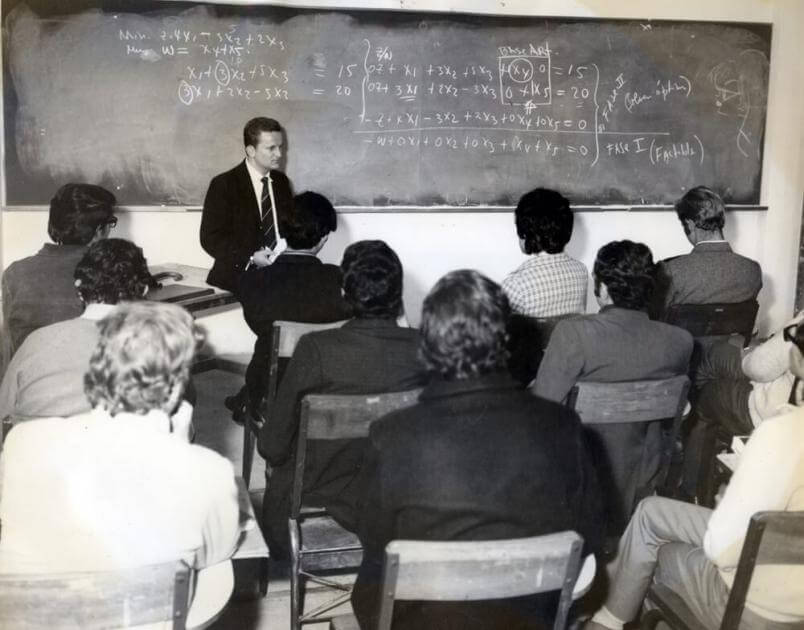 Min. Z = 4x₁ - 3x₂ + 2x₃
Min W = x₄ + x₅
x₁ + 3x₂ + 5x₃ = 15
3x₁ + 2x₂ - 3x₂ = 20
BASE ART.
0Z + x₁ + 3x₂ + 5x₃ + x₄ 0 = 15
0Z + 3x₁ + 2x₂ - 3x₃ 0 + x₅ = 20
-Z + 4x₁ - 3x₂ + 2x₃ + 0x₄ + 0x₅ = 0
-W + 0x₁ + 0x₂ + 0x₃ + 1x₄ + x₅ = 0
FASE II
FASE I (Factible)